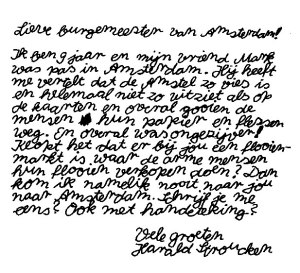 Lieve burgemeester van Amsterdam!
Ik ben 9 jaar en mijn vriend Mark
was pas in Amsterdam. Hij heeft
me vertelt dat de Amstel zo vies is
en helemaal niet zo uitziet als op
de kaarten en overal gooien de
mensen hun papier en flessen
weg. En overal was ongezijver!
Klopt het dat er bij jou een flooien-
markt is waar de arme mensen
hun flooien verkopen doen? Dan
kom ik namelik nooit naar jou
naar Amsterdam. Schrijf je me
eens? Ook met handtekking?
Vele groeten
Harald